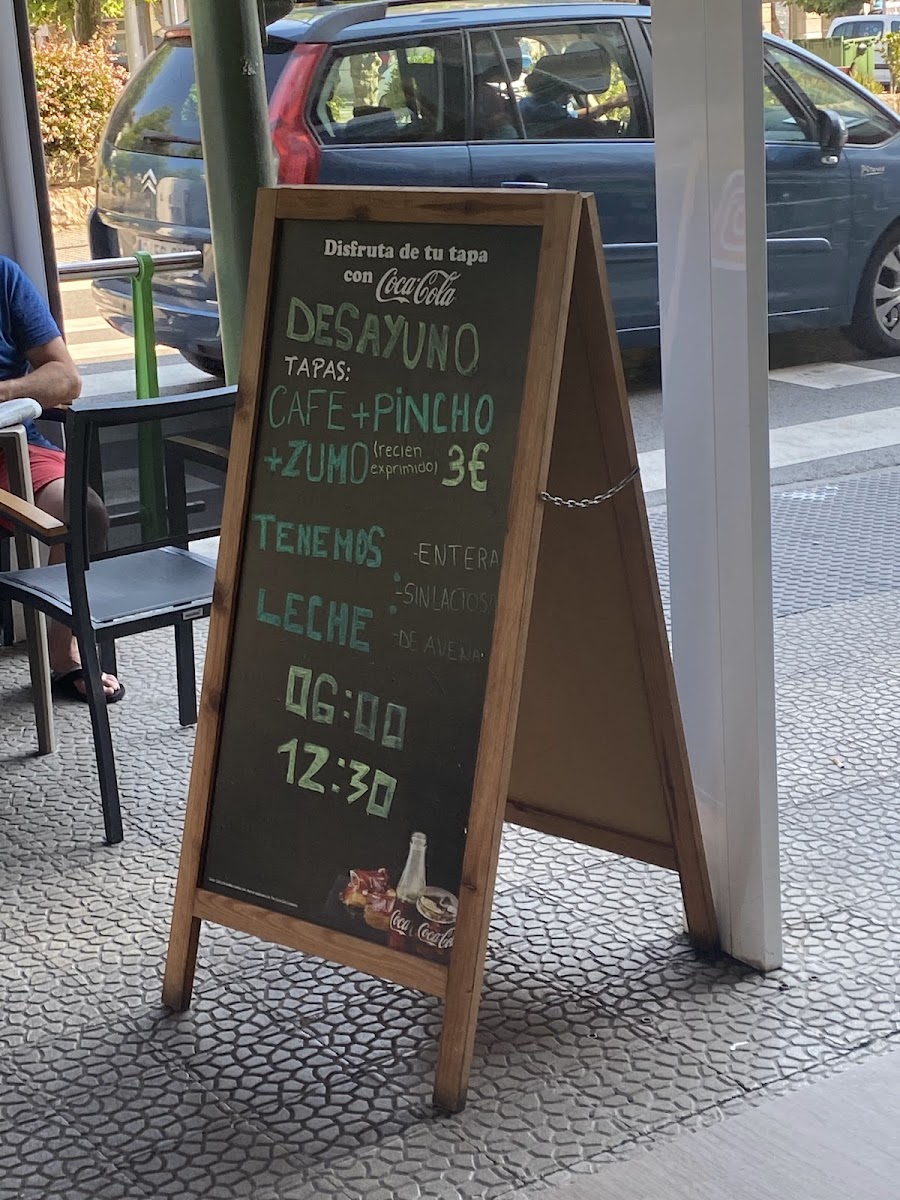 Disfruta de tu tapa
con Coca-Cola
DESAYUNO
TAPAS:
CAFE + PINCHO
+ ZUMO (recien exprimido) 3€
TENEMOS
LECHE
-ENTERA
-SIN LACTOSA
-DE AVENA
06:00
12:30
Coca-Cola